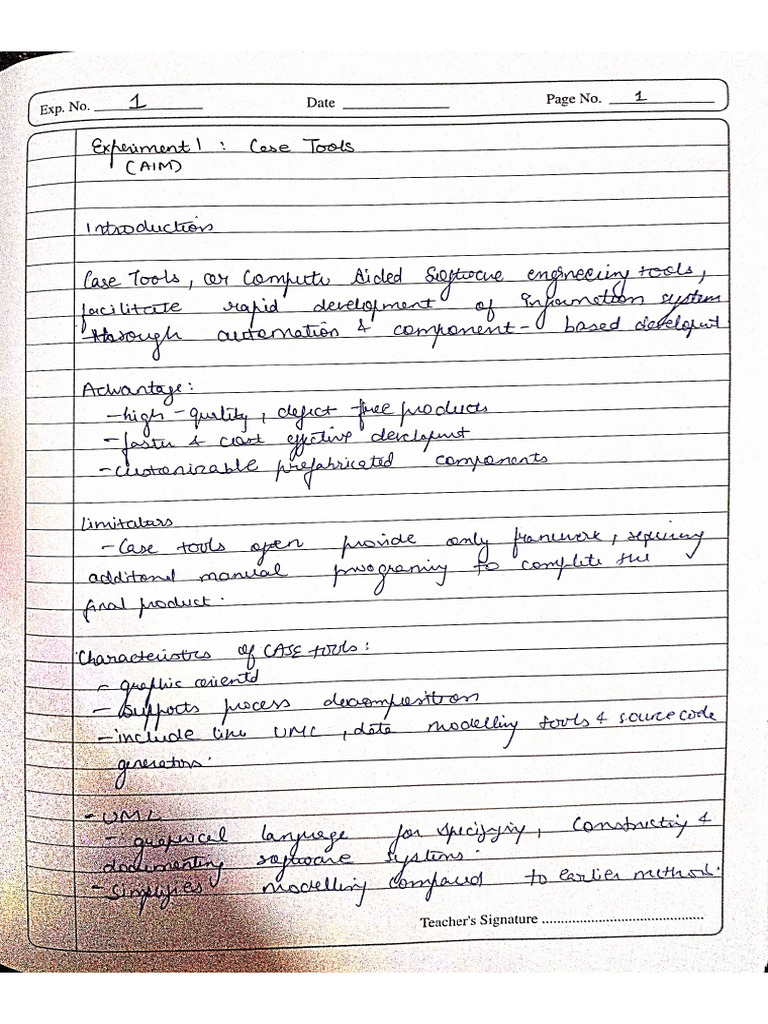 Exp. No. 1 Date Page No. 1
Experiment 1 : Case Tools
(AIM)
Introduction
Case Tools, or Compute Aided Software engineering tools,
facilitate rapid development of Information system
through automation & component - based developt
Advantage:
- high - quality, defect free products
- faster & cost effective developmt
- customizable prefabricated components
Limitations
- Case tools open provide only framework, requiring
additional manual programing to complete the
final product.
Characteristics of CASE tools:
- graphic oriented
- Supports process decomposition
- include line UML, data modelling tools & source code
generators.
- UML
- graphical language for specifying, constructing &
documenting software systems.
- Simplifies modelling compared to earlier method.
Teacher's Signature ..........................................